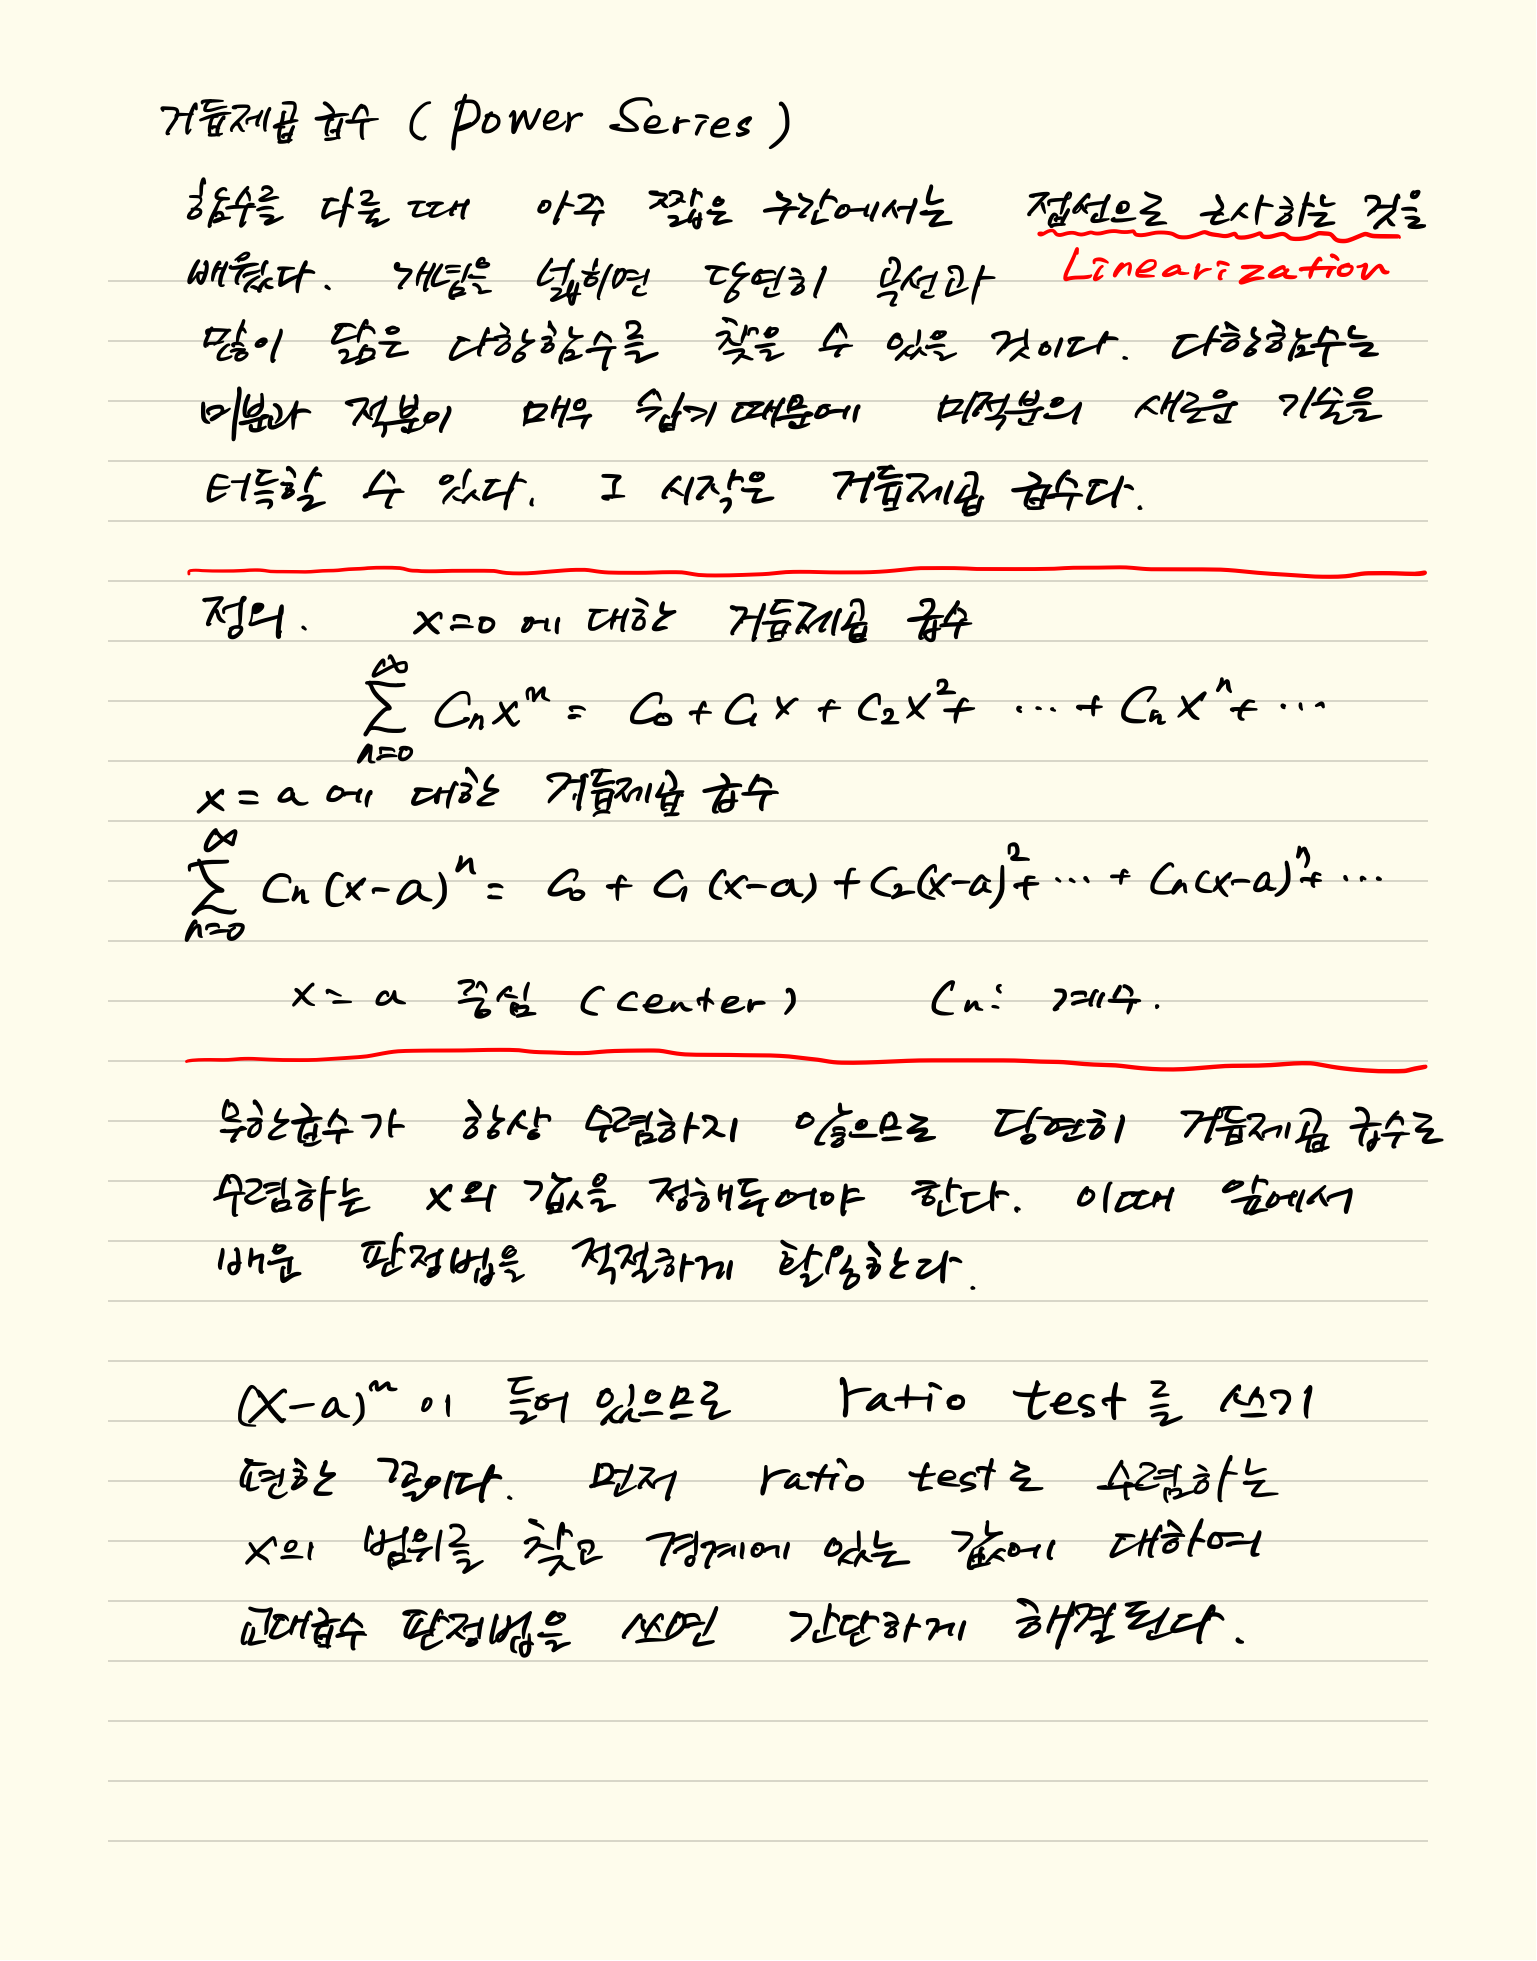 거듭제곱 급수 ( Power Series )
함수를 다룰 때 아주 짧은 구간에서는 접선으로 근사하는 것을
배웠다. 개념을 넓히면 당연히 곡선과 Linearization
많이 닮은 다항함수를 찾을 수 있을 것이다. 다항함수는
미분과 적분이 매우 쉽기 때문에 미적분의 새로운 기술을
터득할 수 있다. 그 시작은 거듭제곱 급수다.
정의. x=0 에 대한 거듭제곱 급수
∑_{n=0}^{∞} C_n x^n = C_0 + C_1 x + C_2 x^2 + ⋯ + C_n x^n + ⋯
x = a 에 대한 거듭제곱 급수
∑_{n=0}^{∞} C_n (x-a)^n = C_0 + C_1 (x-a) + C_2 (x-a)^2 + ⋯ + C_n (x-a)^n + ⋯
x = a 중심 (center) C_n: 계수.
무한급수가 항상 수렴하지 않으므로 당연히 거듭제곱 급수로
수렴하는 x의 값을 정해두어야 한다. 이때 앞에서
배운 판정법을 적절하게 활용한다.
(x-a)^n 이 들어 있으므로 ratio test를 쓰기
편한 꼴이다. 먼저 ratio test로 수렴하는
x의 범위를 찾고 경계에 있는 값에 대하여
교대급수 판정법을 쓰면 간단하게 해결된다.